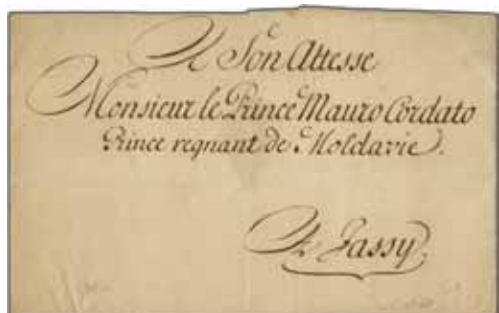 A Son Attesse
Monsieur le Prince Mauro Cordato
Prince regnant de Moldavie.
A Jassy.